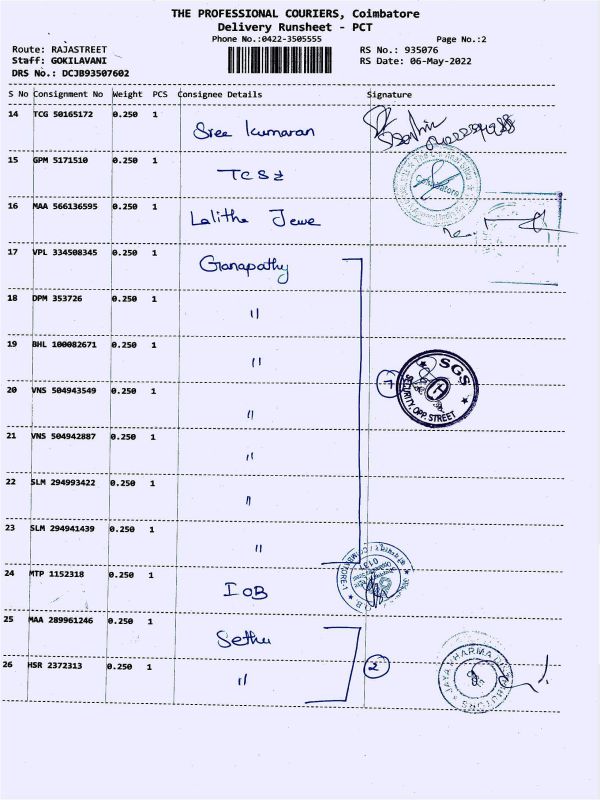 THE PROFESSIONAL COURIERS, Coimbatore
Delivery Runsheet - PCT
Phone No.:0422-3505555 Page No.:2
Route: RAJASTREET RS No.: 935076
Staff: GOKILAVANI RS Date: 06-May-2022
DRS No.: DCJB93507602
S No Consignment No Weight PCS Consignee Details Signature
14 TCG 50165172 0.250 1 Sree Kumaran
15 GPM 5171510 0.250 1 TCS
Coimbatore
16 MAA 566136595 0.250 1 Lalitha Jewe
17 VPL 334508345 0.250 1 Ganapathy
18 DPM 353726 0.250 1 "
19 BHL 100082671 0.250 1 "
7
SGS
SECURITY, OPP. STREET
20 VNS 504943549 0.250 1 "
21 VNS 504942887 0.250 1 "
22 SLM 294993422 0.250 1 "
23 SLM 294941439 0.250 1 "
24 MTP 1152318 0.250 1 IOB
25 MAA 289961246 0.250 1 Sethu
26 HSR 2372313 0.250 1 "
2
JAYA DHARMA